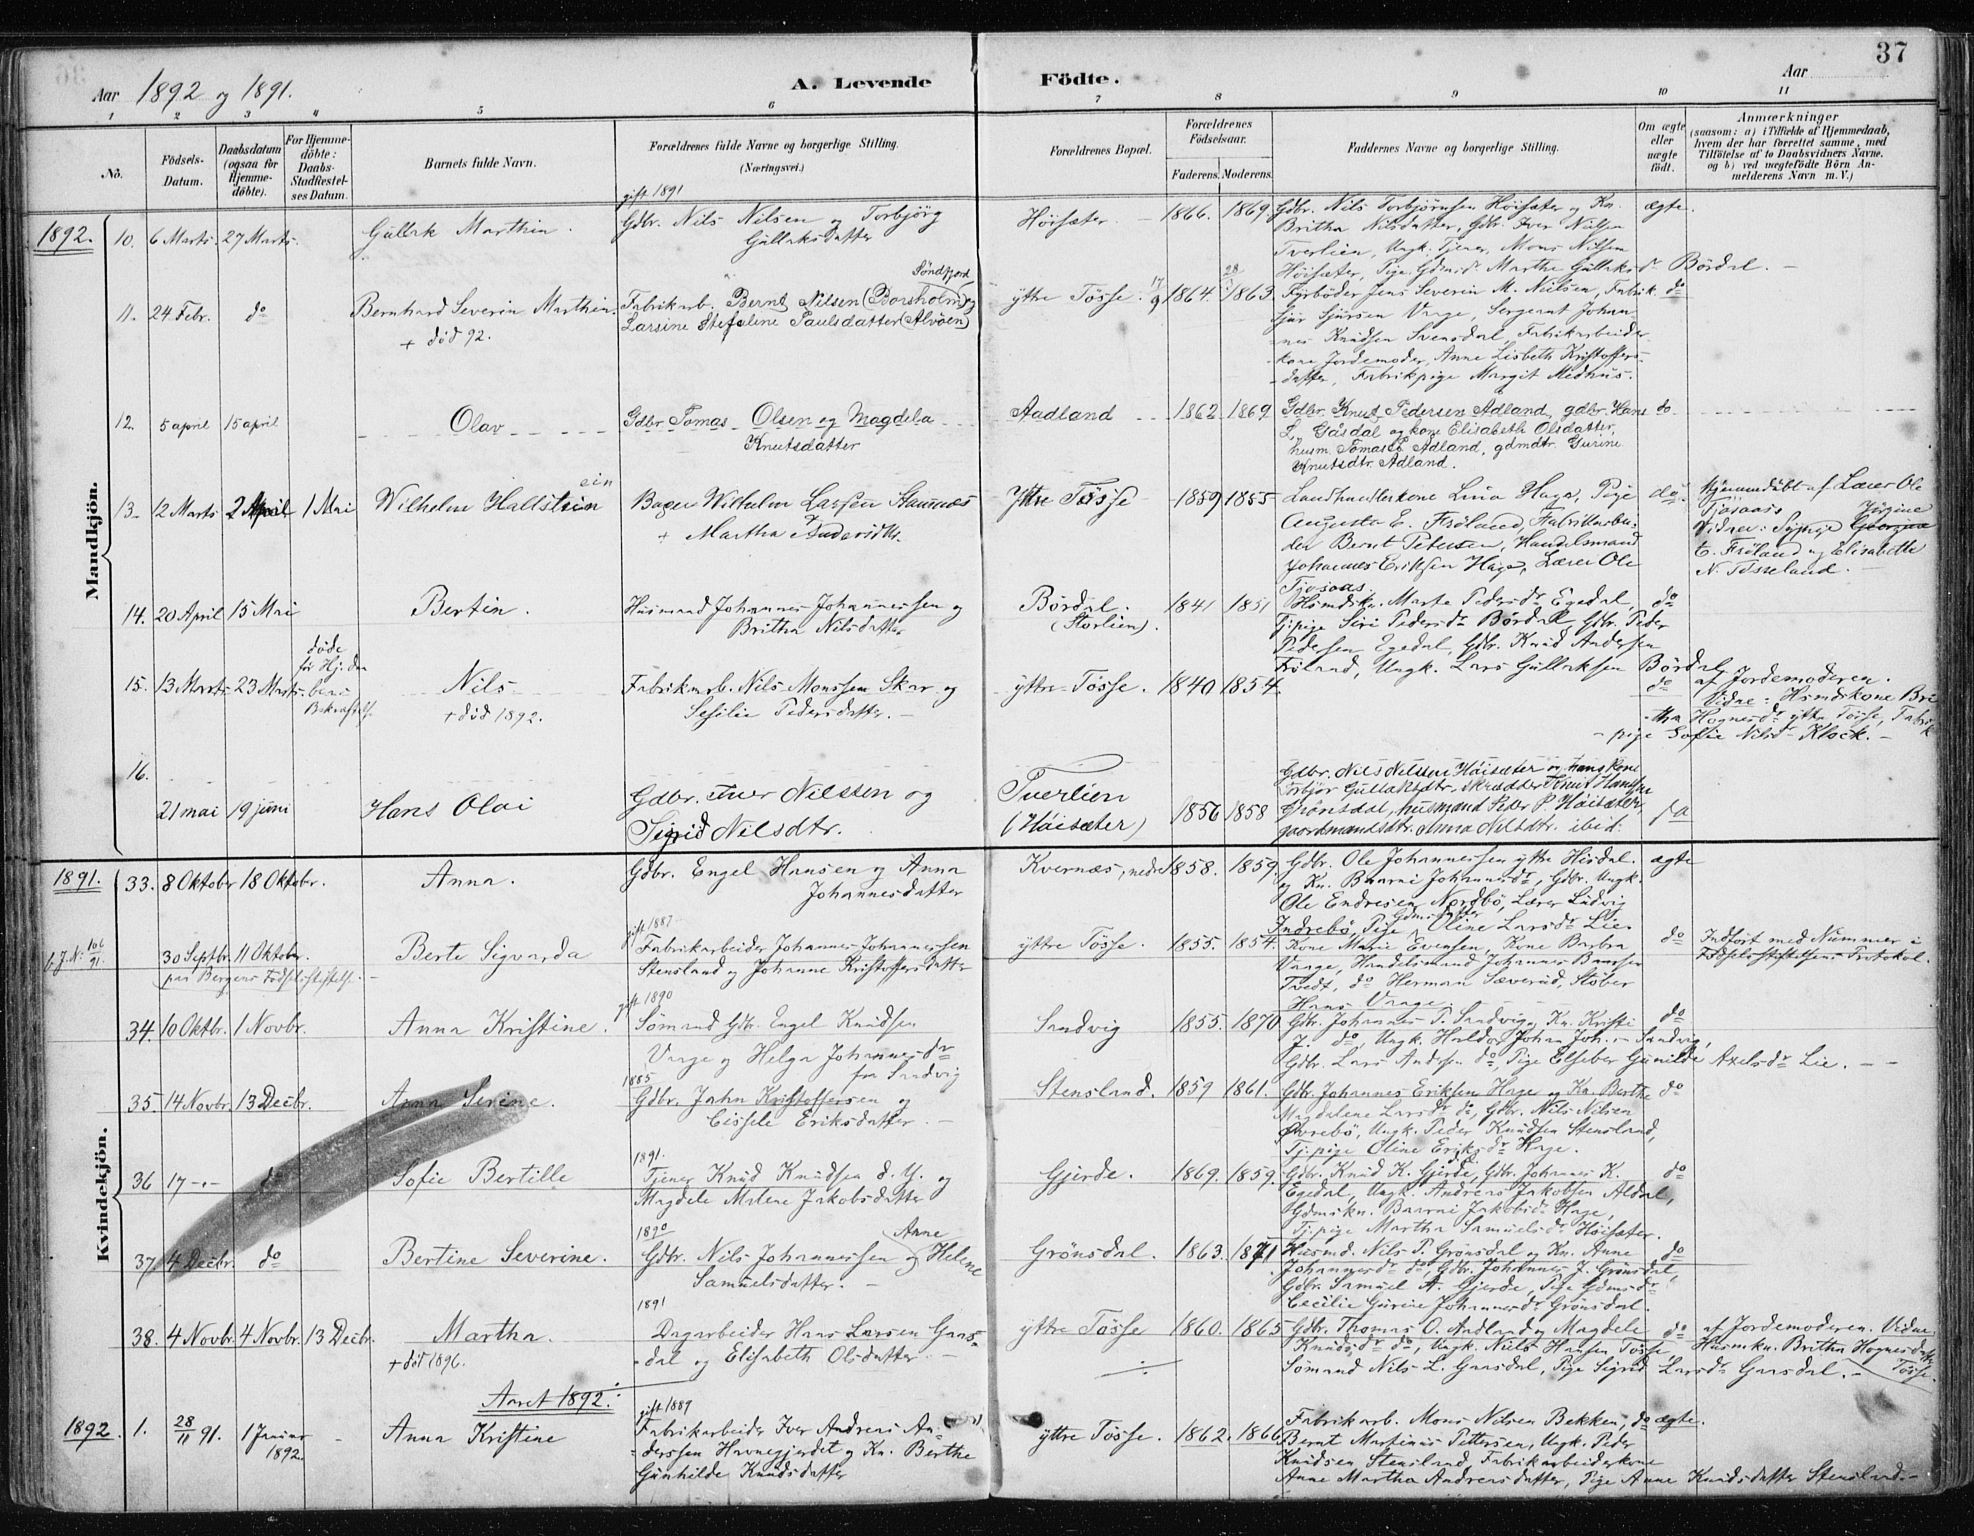 37
Aar 1892 og 1891.
A. Levende Födte.
Aar
1 2 3 4 5 6 7 8 9 10 11
No.
Födsels-Datum.
Daabsdatum (ogsaa for Hjemmedöbte).
For Hjemmedöbte: Daabs-Stadfæstelses Datum.
Barnets fulde Navn.
Forældrenes fulde Navne og borgerlige Stilling. (Næringsvei.)
Forældrenes Bopæl.
Forældrenes Födselsaar.
Faderens. Moderens.
Faddernes Navne og borgerlige Stilling.
Om ægte eller uægte født.
Anmærkninger
(saasom: a) i Tilfælde af Hjemmedaab, hvem der har forrettet samme, med Tilföielse af to Daabsvidners Navne. og b) ved uægtefödte Börn Anmelderens Navn m. V.)
Mandkjön.
1892.
gift 1891
10. 6 Marts 27 Marts. Gullak Marthin. Gdbr. Nils Nilsen og Torbjörg
Gullaksdatter
Höisæter. 1866. 1869
Gdbr. Nils Torbjörnsen Höisæter og Kn. ægte.
Britha Nilsdatter, Gdbr. Iver Nilsen
Tverlien, Ungk. Tjener, Mons Nilsen
Höisæter, Pige Gdmsd. Marthe Gullaksdr Bördal.
Söndfjord
11. 24 Febr. do Bernhard Severin Marthin. Fabrikarb. Bernt Nilsen (Borsholm) og
+ död 92. Larsine Stefaline Paulsdatter (Alvöen)
ytre Tösse. 1864. 1863.
Fyrböder Jens Severin M. Nilsen, Fabrik. do
Sjur Sjursen Vaage, Sergeant Johan
nes Knudsen Svensdal, Fabrikarbeider
kone Jordemoder, Anne Lisbeth Kristoffers-
datter, Fabrikpige Margit Midhus.
12. 5 april 15 april Olav Gdbr Tomas Olsen og Magdela
Knutsdatter
Aadland 1862 1869
Gdbr. Knut Pedersen Adland, gdbr. Hans do
L. Gåsdal og kone Elisabeth Olsdatter,
husm. Tomas P. Adland, gdmdtr. Gurine
Knutsdtr. Adland.
13. 12 Marts 2 April 1 Mai Wilhelm Hallstein Bager Wilhelm Larsen Stamnes
+ Martha Andersdtr.
Ytre Tösse 1859 1855
Landhandlerkone Lina Hage, Pige do.
Augusta E. Fröland, Fabrikarbei-
der Bernt Petersen, Handelsmand
Johannes Eriksen Hage, Lærer Ole
Tjosaas.
Hjemmedöbt af Lærer Ole
Tjosaas Jörgine
Vidner: Sypige
E. Fröland og Elisabethe
N. Tösseland.
14. 20 April 15 Mai Bertin. Husmand Johannes Johannessen og
Britha Nilsdatter
Bördal. (Storlien). 1841 1851
Husmdskn. Marta Pedersdr Egedal, do
Tj.pige Siri Pedersdr Bördal, Gdbr. Peder
Pedersen Egedal, Gdbr. Knud Andersen
Fröland, Ungk. Lars Gullaksen Bördal.
döde
før Hj. daa
bens
Bekræftelse
15. 13 Marts 23 Marts Nils Fabrikarb. Nils Monssen Skar og
+ död 1892. Sesilie Pedersdatter.
ytre Tösse. 1840 1854
do af Jordemoderen.
Vidne: Husmdskone Bri
tha Hognesdr ytre Tösse, Fabrik
pige Sofie Nilsdr Klock.
16. 21 mai 19 juni Hans Olai Gdbr. Iver Nilssen og
Sigrid Nilsdtr.
Tverlien (Höisæter) 1856 1858
Gdbr. Nils Nilssen Höisæter og hans kone
Torbjör Gullaksdtr. skrædder Knut Hanssen
Grönsdal, husmand Peder P. Höisæter,
gaardmandsdtr. Anna Nilsdtr. ibid.
1891. 33. 8 Oktober 18 Oktober. Anna. Gdbr. Engel Hansen og Anna
Johannesdatter
Kvernæs, nedre 1858. 1859.
Gdbr. Ole Johannessen ytre Hisdal. ægte
og Kn. Baarni Johannesdr, Gdbr. Ungk.
Ole Endresen Nordbö, Lærer Ludvig
Indrebö, Pige Gdmsdatter Oline Larsdr Lie.
gift 1887
f. J. No 106/91. 30 Septbr. 11 Oktober. Berte Sigvarda Fabrikarbeider Johannes Johannessen
paa Bergens Födselsstiftelse. Stensland og Johanne Kristoffersdatter
ytre Tösse. 1855. 1854.
Kone Marie Evensen, Kone Barbra do
Vaage, Handelsmand Johannes Baarsen
Tvedt, do Herman Sæverud, Stöber
Hans Vaage.
Indfört med Nummer i
Födselsstiftelsens Protokol.
gift 1890
Kvindekjön.
34. 10 Oktbr. 1 Novbr. Anna Kristine. Sömand Gdbr. Engel Knudsen
Vaage og Helga Johannesdr
fra Sandvig
Sandvig 1855. 1870
Gdbr. Johannes T. Sandvig og Kn. Kristi do
J. do, Ungk. Haldor Johan Joh. Sandvig,
Gdbr. Lars Andersen do, Pige Elseber Gunilde Axelsdr Lie.
1885
35. 14 Novbr. 13 Decbr. Anna Serine. Gdbr. Jahn Kristoffersen og
Cissele Eriksdatter.
Stensland. 1859 1861.
Gdbr. Johannes Eriksen Hage og Kn. Berthe do
Magdalene Larsdr do, Gdbr. Nils Nilsen
Övrebö, Ungk. Peder Knudsen Stensland,
Tj. pige Oline Eriksdr Hage.
1891.
36 17 do Sofie Bertille Tjener Knud Knudsen d. Y. og
Magdele Malene Jakobsdatter
Gjerde. 1869. 1859.
Gdbr. Knud K. Gjerde, Gdbr. Johannes K. do
Egedal, Ungk. Andreas Jakobsen Aldal,
Gdmskn. Baarni Jakobsdr Hage,
Tj. pige Martha Samuelsdr Höisæter.
1890
37 4 Decbr. do Bertine Severine. Gdbr. Nils Johannessen og Anne Helene
Samuelsdatter.
Grönsdal. 1863. 1871
Husmd. Nils P. Grönsdal og Kn. Anne do
Johannesdr do, Gdbr. Johannes J. Grönsdal,
Gdbr. Samuel A. Gjerde, Pige Gdmsdr
Cecilie Gurine Johannesdr Grönsdal.
1891
38. 4 Novbr. 4 Novbr. 13 Decbr. Martha. Dagarbeider Hans Larsen Gaas-
+ död 1896. dal og Elisabeth Olsdatter.
ytre Tösse 1860. 1865
Gdbr. Thomas O. Aadland og Magdele do
Knudsdr do, Ungk. Nils Hansen Tösse,
Sömand Nils L. Gaasdal, Pige Sigrid Larsdr Gaasdal.
af Jordemoderen. Vidne
Husmkn. Britha Hognesdatter
Tösse.
Aaret 1892.
gift 1889
1892 1. 28/11 91. 1 Januar 1892. Anna Kristine Fabrikarbeider Iver Andreas An-
derssen Havnegjerdet og Kn. Berthe
Gunhilde Knudsdatter
ytre Tösse. 1862. 1866
Fabrikarb. Mons Nilsen Bekken, do ægte.
Bernt Martinus Pettersen, Ungk. Peder
Knudsen Stensland, Fabrikarbeiderkone
Anne Martha Andreasdatter, Pige Anne Knudsdatter Stensland.